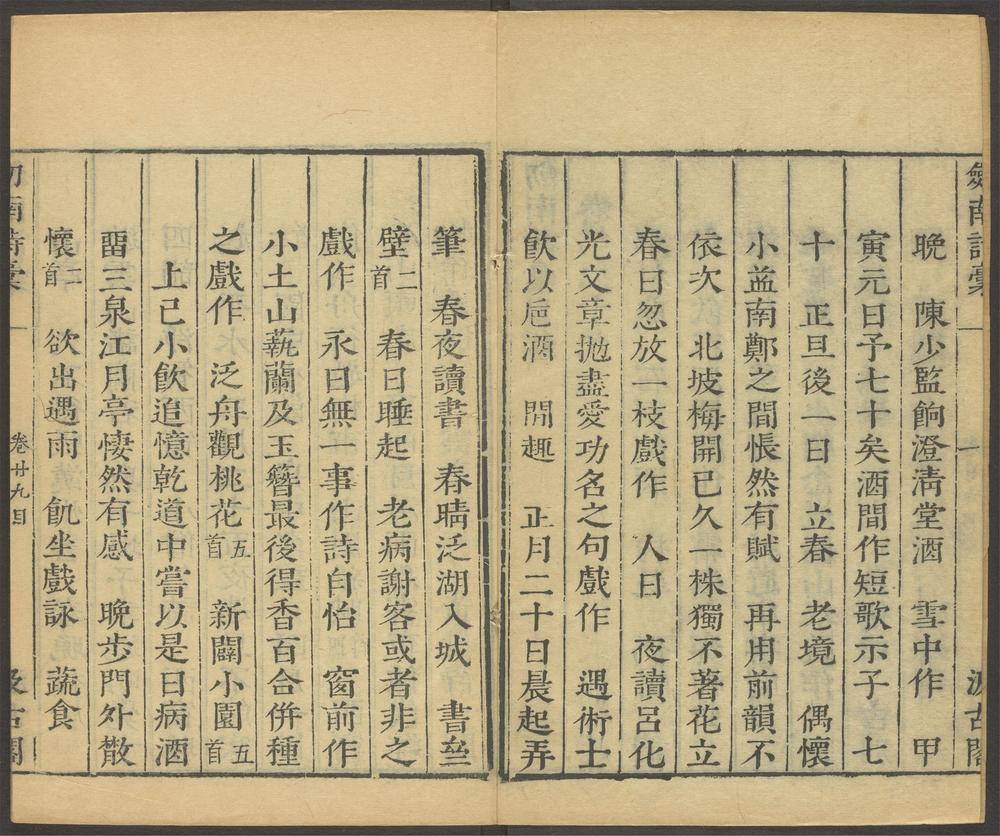 劔南詩稾　一　汲古閣
晚　陳少監餉澄淸堂酒　雪中作　甲
寅元日予七十矣酒間作短歌示子　七
十　正旦後一日　立春　老境　偶懷
小益南鄭之間悵然有賦　再用前韻不
依次　北坡梅開已久一株獨不著花立
春日忽放一枝戲作　人日　夜讀呂化
光文章抛盡愛功名之句戲作　遇術士
飲以巵酒　閒趣　正月二十日晨起弄
筆　春夜讀書　春晴泛湖入城　書坐
壁二首　春日睡起　老病謝客或者非之
戲作　永日無一事作詩自怡　窗前作
小土山蓺蘭及玉簪最後得香百合併種
之戲作　泛舟觀桃花五首　新闢小園五首
上巳小飲追憶乾道中嘗以是日病酒
畱三泉江月亭悽然有感　晚步門外散
懷二首　欲出遇雨　飢坐戲詠　蔬食
劔南詩稾　卷廿九目　汲古閣